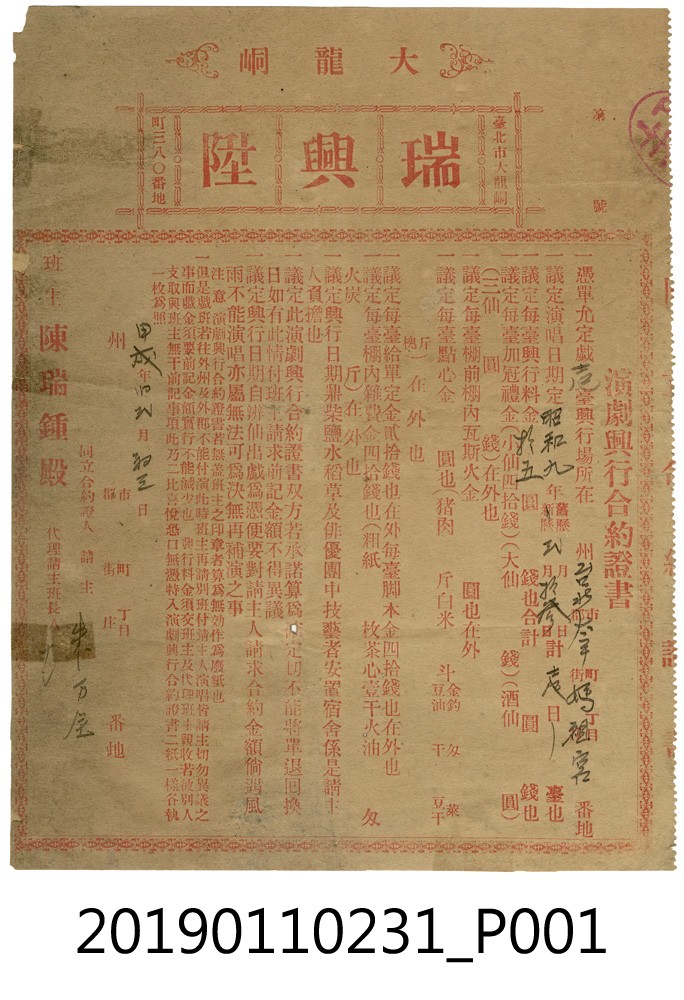 大龍峒
臺北市大龍峒
瑞興陞
町三八〇番地
第　號
演劇興行合約證書
一憑單允定戲 壱 臺興行場所在　州 市 郡 町 街 丁目 媽祖宮 番地
一議定演唱日期定 昭和九 年 舊曆 新曆 月 日 計 日 臺也
一議定每臺興行料金 拾五 圓　錢也合計　圓　錢也
一議定每臺加冠禮金(小仙四拾錢)(大仙　錢)(酒仙　圓)
(三仙　圓　錢)在外也
一議定每臺棚前棚內瓦斯火金　圓也在外
一議定每臺點心金　圓也(猪肉　斤白米　斗 金鈎 豆油 匁 干 菜 豆干
斤 在外也
一議定每臺給單定金貳拾錢也在外每臺脚本金四拾錢也在外也
一議定每臺棚內雜費金四拾錢也(粗紙　枚茶心壹干火油　匁
火炭　斤)在外也
一議定興行日期鼎柴鹽水稻草及俳優團中技藝者安置宿舍係是請主
人負擔也
一議定此演劇興行合約證書双方若承諾算爲 定切不能將單退回換
日如有此情付班主請求前記金額不得異議
一議定興行日期自辨仙出戲爲憑便要對請主人請求合約金額倘遇風
雨不能演唱亦屬無法可爲決無再補演之事
注意演劇興行合約證書若無蓋班主之印章者算爲無効作爲廢紙也
一但是戲班若往外州及外郡不能付演此時班主再請別班付請主人演唱皆請主切勿異議之
事而戲金須要前記金額實行不能減少也 興行料金須交班主及代理班主親收若被別人
支取與班主無干前記事項此乃二比喜悅恐口無憑特入演劇興行合約證書二紙一樣各執
一枚爲照
甲戌年 月 初三 日
州 市 郡 町 街 丁目 庄 番地
同立合約證人　請主
代理請主班長　朱万金
班主 陳瑞鍾殿
20190110231_P001